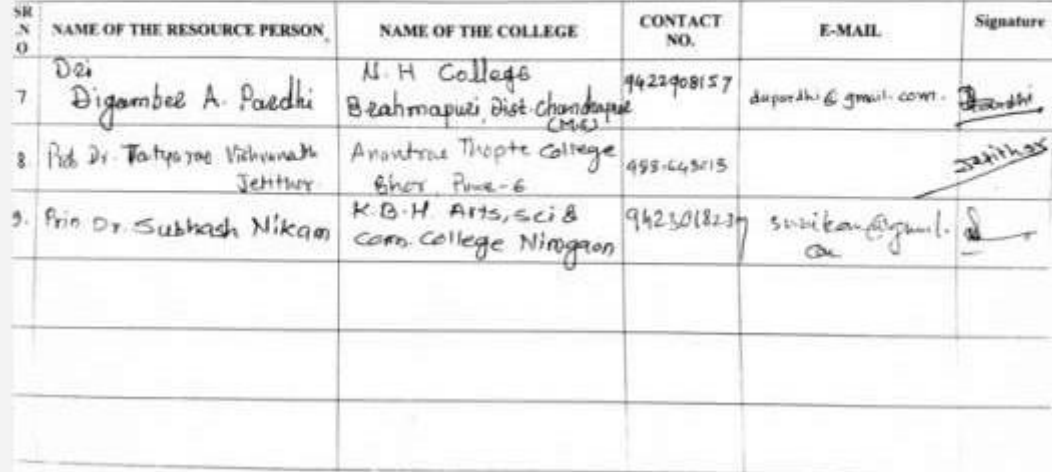 SR
.N
O
NAME OF THE RESOURCE PERSON
NAME OF THE COLLEGE
CONTACT
NO.
E-MAIL
Signature
7
Digamber A. Pardhi
N. H College
Brahmapuri, Dist. Chandrapur
(M.S)
9422908157
dapardhi@gmail.com.
8
Prof. Dr. Tatyarao Vishvanath
Anantrao Thopte College
Bhor, Pune-6
9.
Prin Dr. Subhash Nikam
K.B.H. Arts, sci &
com. College Nimgaon